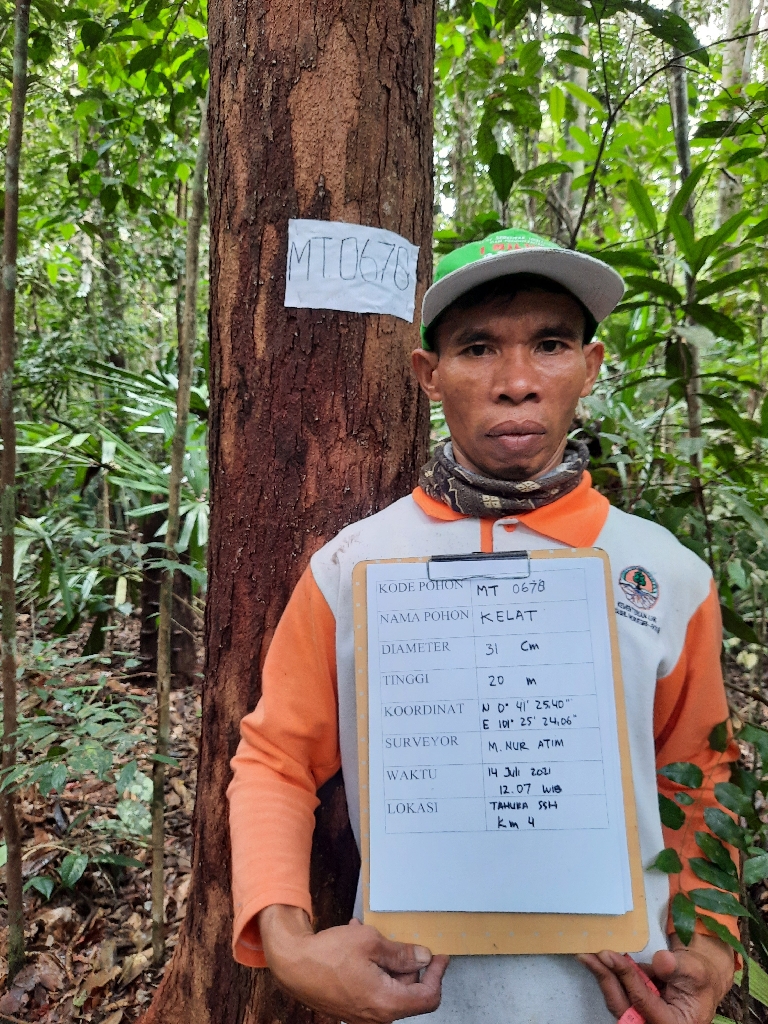 MT0678
KODE POHON MT 0678
NAMA POHON KELAT
DIAMETER 31 Cm
TINGGI 20 m
KOORDINAT N 0° 41' 25.40"
E 101° 25' 24.06"
SURVEYOR M. NUR ATIM
WAKTU 14 Juli 2021
12.07 WIB
LOKASI TAHURA SSH
Km 4